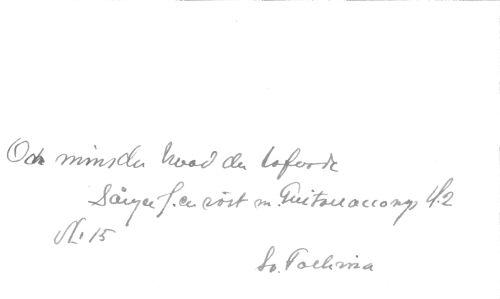 Och minsdu hvad du lofvade
Sånger f. en röst m. Guitarraccomp. H. 2
N. 15